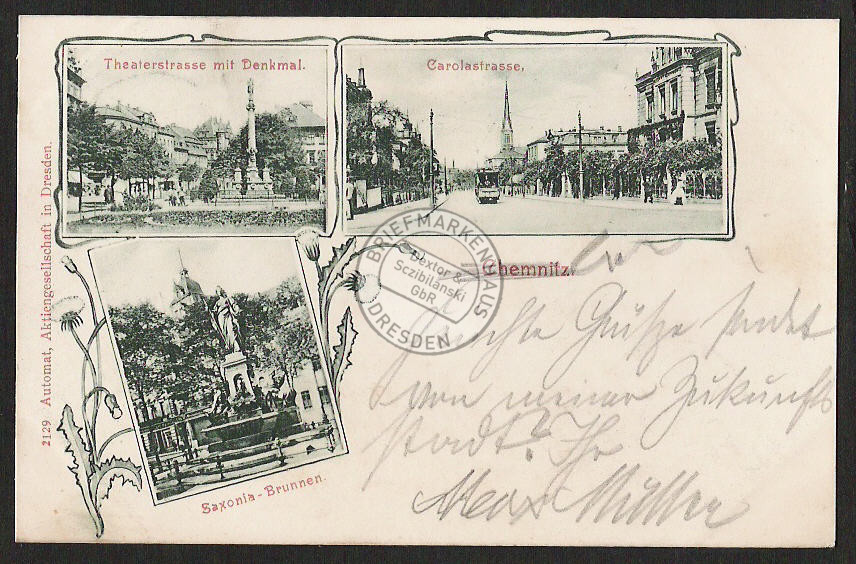 Theaterstrasse mit Denkmal.
Carolastrasse,
2129 Automat, Aktiengesellschaft in Dresden.
BRIEFMARKENHAUS
Dextor &
Sczibilanski
GbR
DRESDEN
Chemnitz,
Grüße sendet
von meiner Zukunfts
stadt? Ihr
Max Müller
Saxonia-Brunnen.